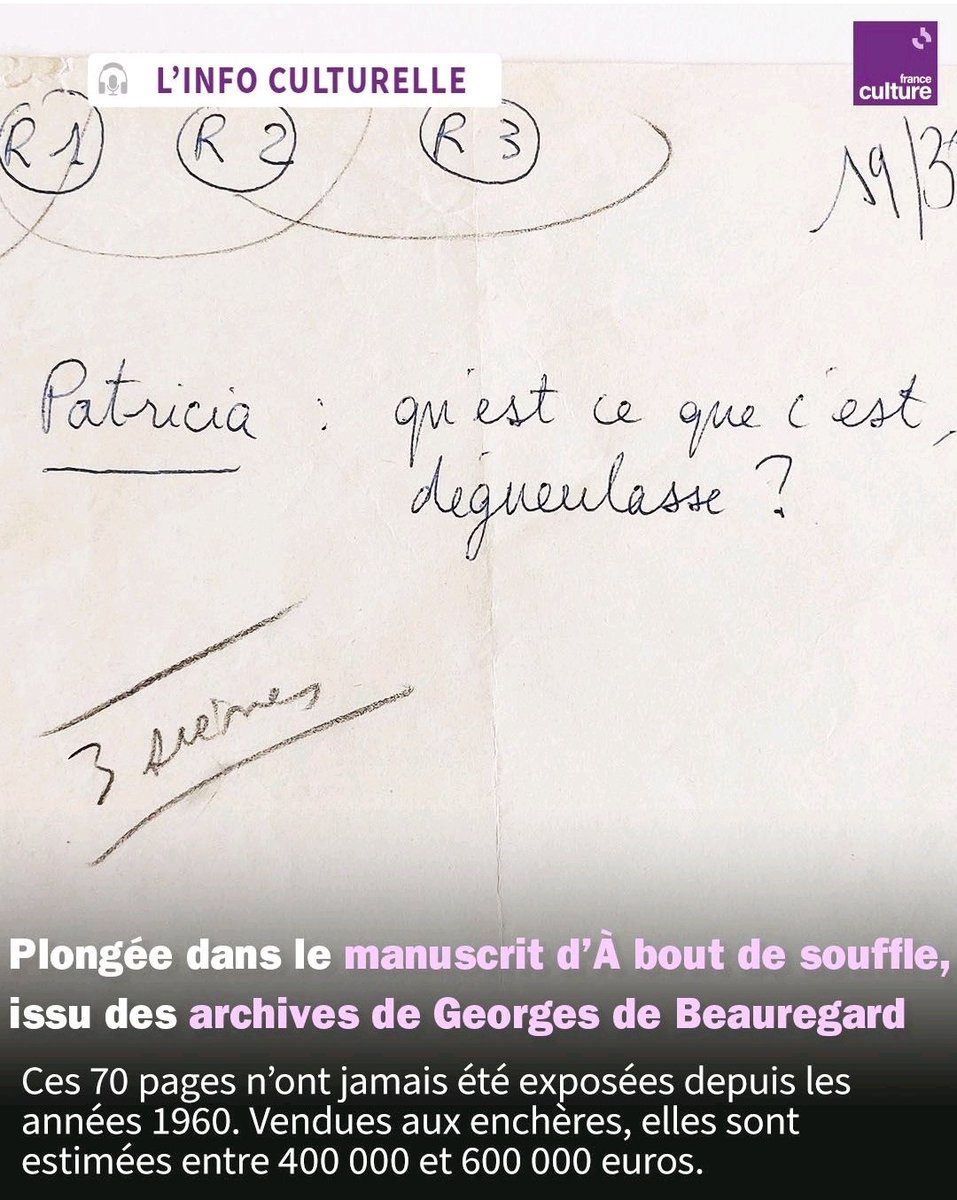 L'INFO CULTURELLE
france
culture
R 1 R 2 R 3 19/3
Patricia : qu'est ce que c'est,
dégueulasse ?
3
Plongée dans le manuscrit d'À bout de souffle,
issu des archives de Georges de Beauregard
Ces 70 pages n'ont jamais été exposées depuis les
années 1960. Vendues aux enchères, elles sont
estimées entre 400 000 et 600 000 euros.